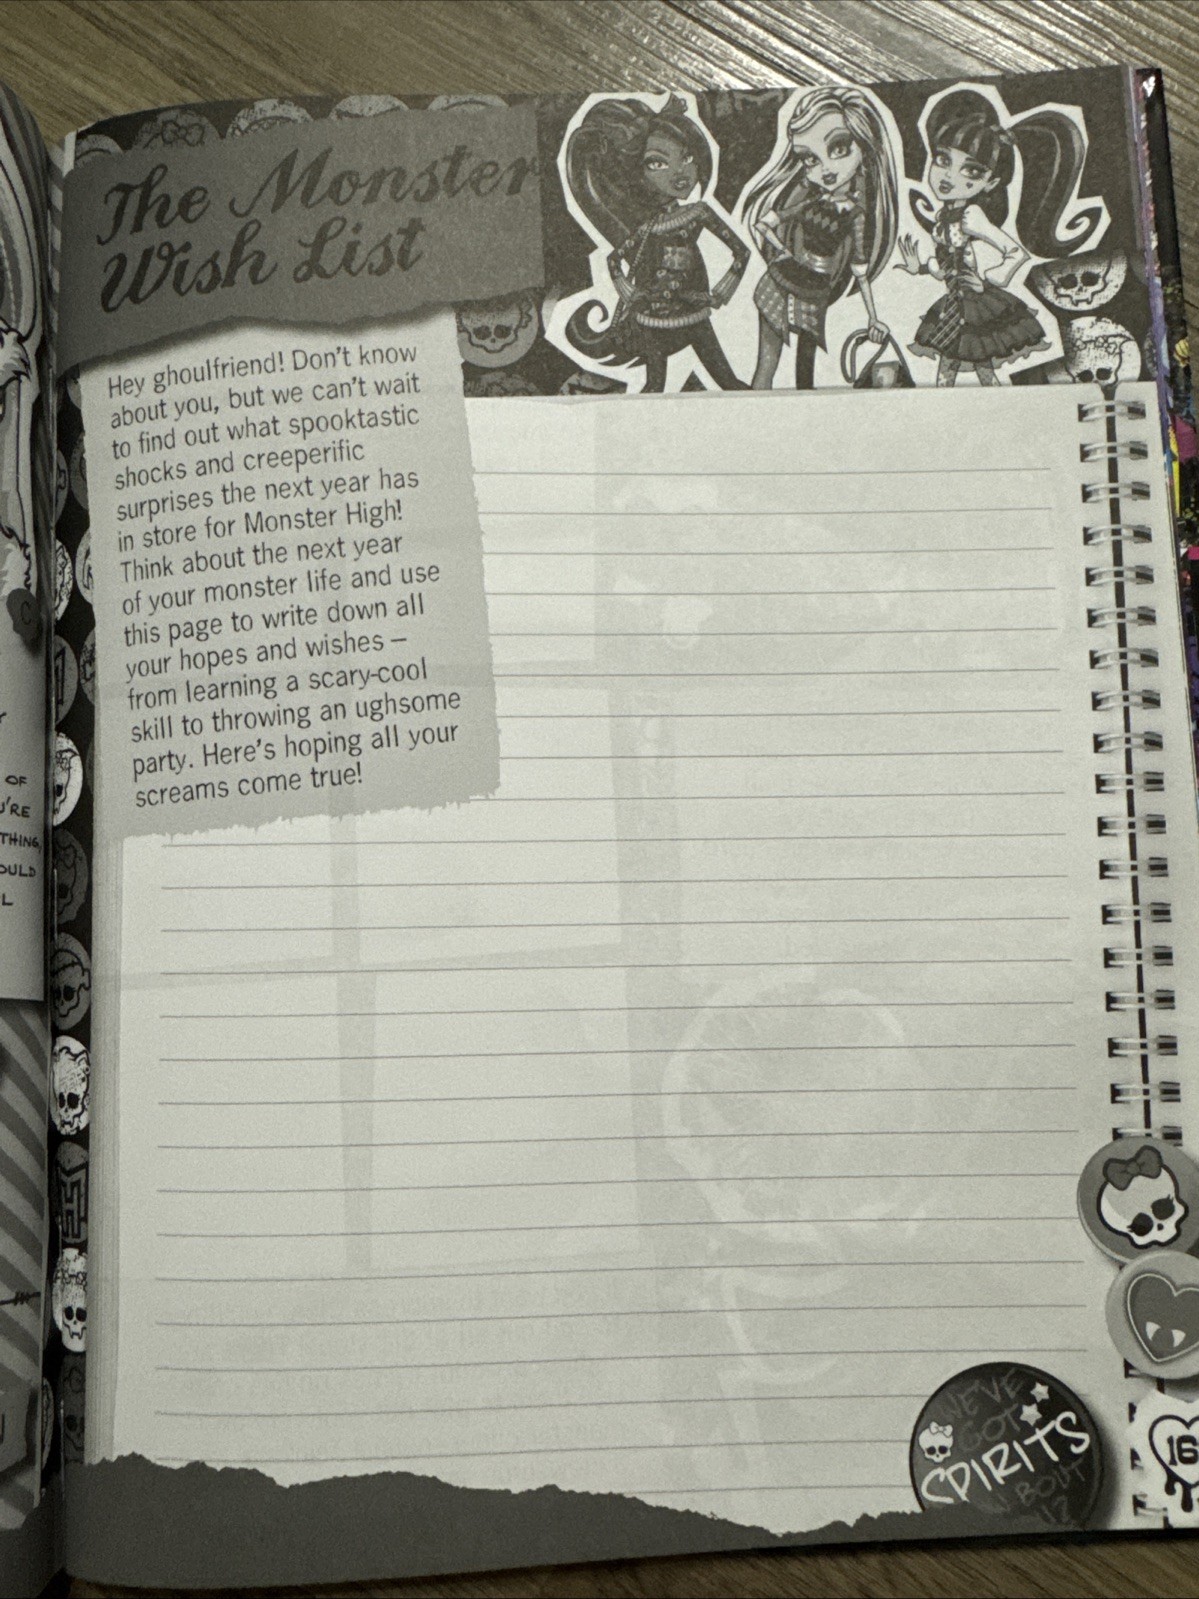 The Monster
Wish List
Hey ghoulfriend! Don't know
about you, but we can't wait
to find out what spooktastic
shocks and creeperific
surprises the next year has
in store for Monster High!
Think about the next year
of your monster life and use
this page to write down all
your hopes and wishes –
from learning a scary-cool
skill to throwing an ughsome
party. Here's hoping all your
screams come true!
OF
U'RE
THING,
OULD
L
C
WE'VE
GOT
SPIRITS
16